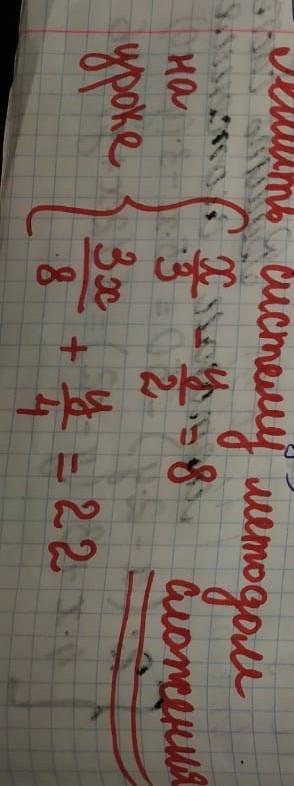 Решить систему методом
на сложения
уроке
x/3 - y/2 = 8
3x/8 + y/4 = 22